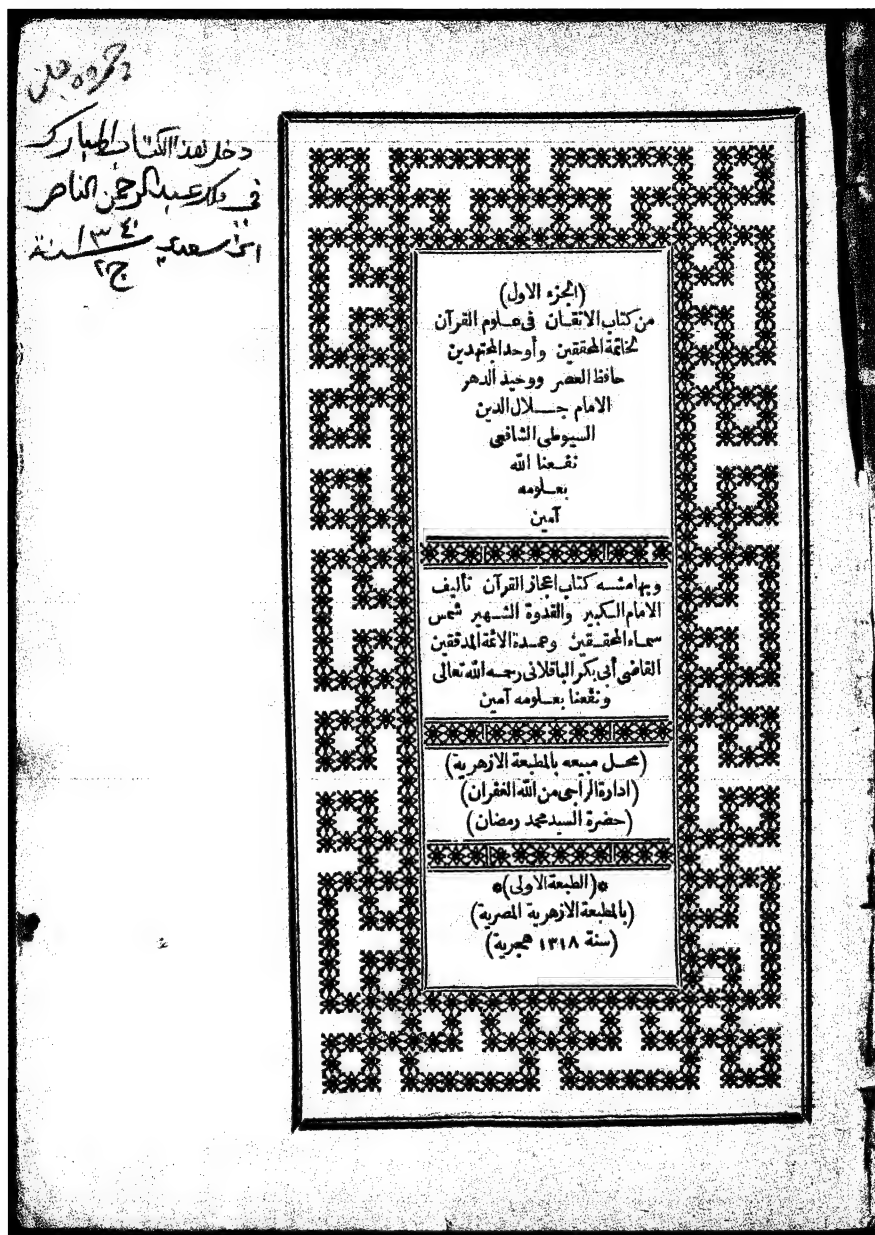 دخل هذا الكتاب المبارك
في ملك عبد الرحمن الناصر
السعدي سنة ١٣٤٠
ج٢
(الجزء الاول)
من كتاب الاتقان فى علوم القرآن
لخاتمة المحققين وأوحد المجتهدين
حافظ العصر ووحيد الدهر
الامام جلال الدين
السيوطى الشافعى
نفعنا الله
بعلومه
آمين
وبهامشه كتاب اعجاز القرآن تأليف
الامام الكبير والقدوة الشهير شمس
سماء المحققين وعمدة الائمة المدققين
القاضى أبى بكر الباقلانى رحمه الله تعالى
ونفعنا بعلومه آمين
(محل مبيعه بالمطبعة الازهرية)
(ادارة الراجى من الله الغفران)
(حضرة السيد محمد رمضان)
*(الطبعة الاولى)*
(بالمطبعة الازهرية المصرية)
(سنة ١٣١٨ هجرية)